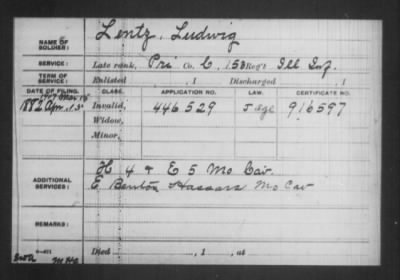 NAME OF SOLDIER: Lentz, Ludwig
SERVICE: Late rank, Pri Co. C, 153 Reg't Ill Inf.
TERM OF SERVICE: Enlisted , 1 Discharged , 1
DATE OF FILING. CLASS. APPLICATION NO. LAW. CERTIFICATE NO.
1882 Apr. 13 Invalid, 446529 J age 916597
Widow,
Minor,
ADDITIONAL SERVICES: H 4 & E 5 Mo Cav.
E Benton Hussars Mo Cav
REMARKS:
Died , 1 , at